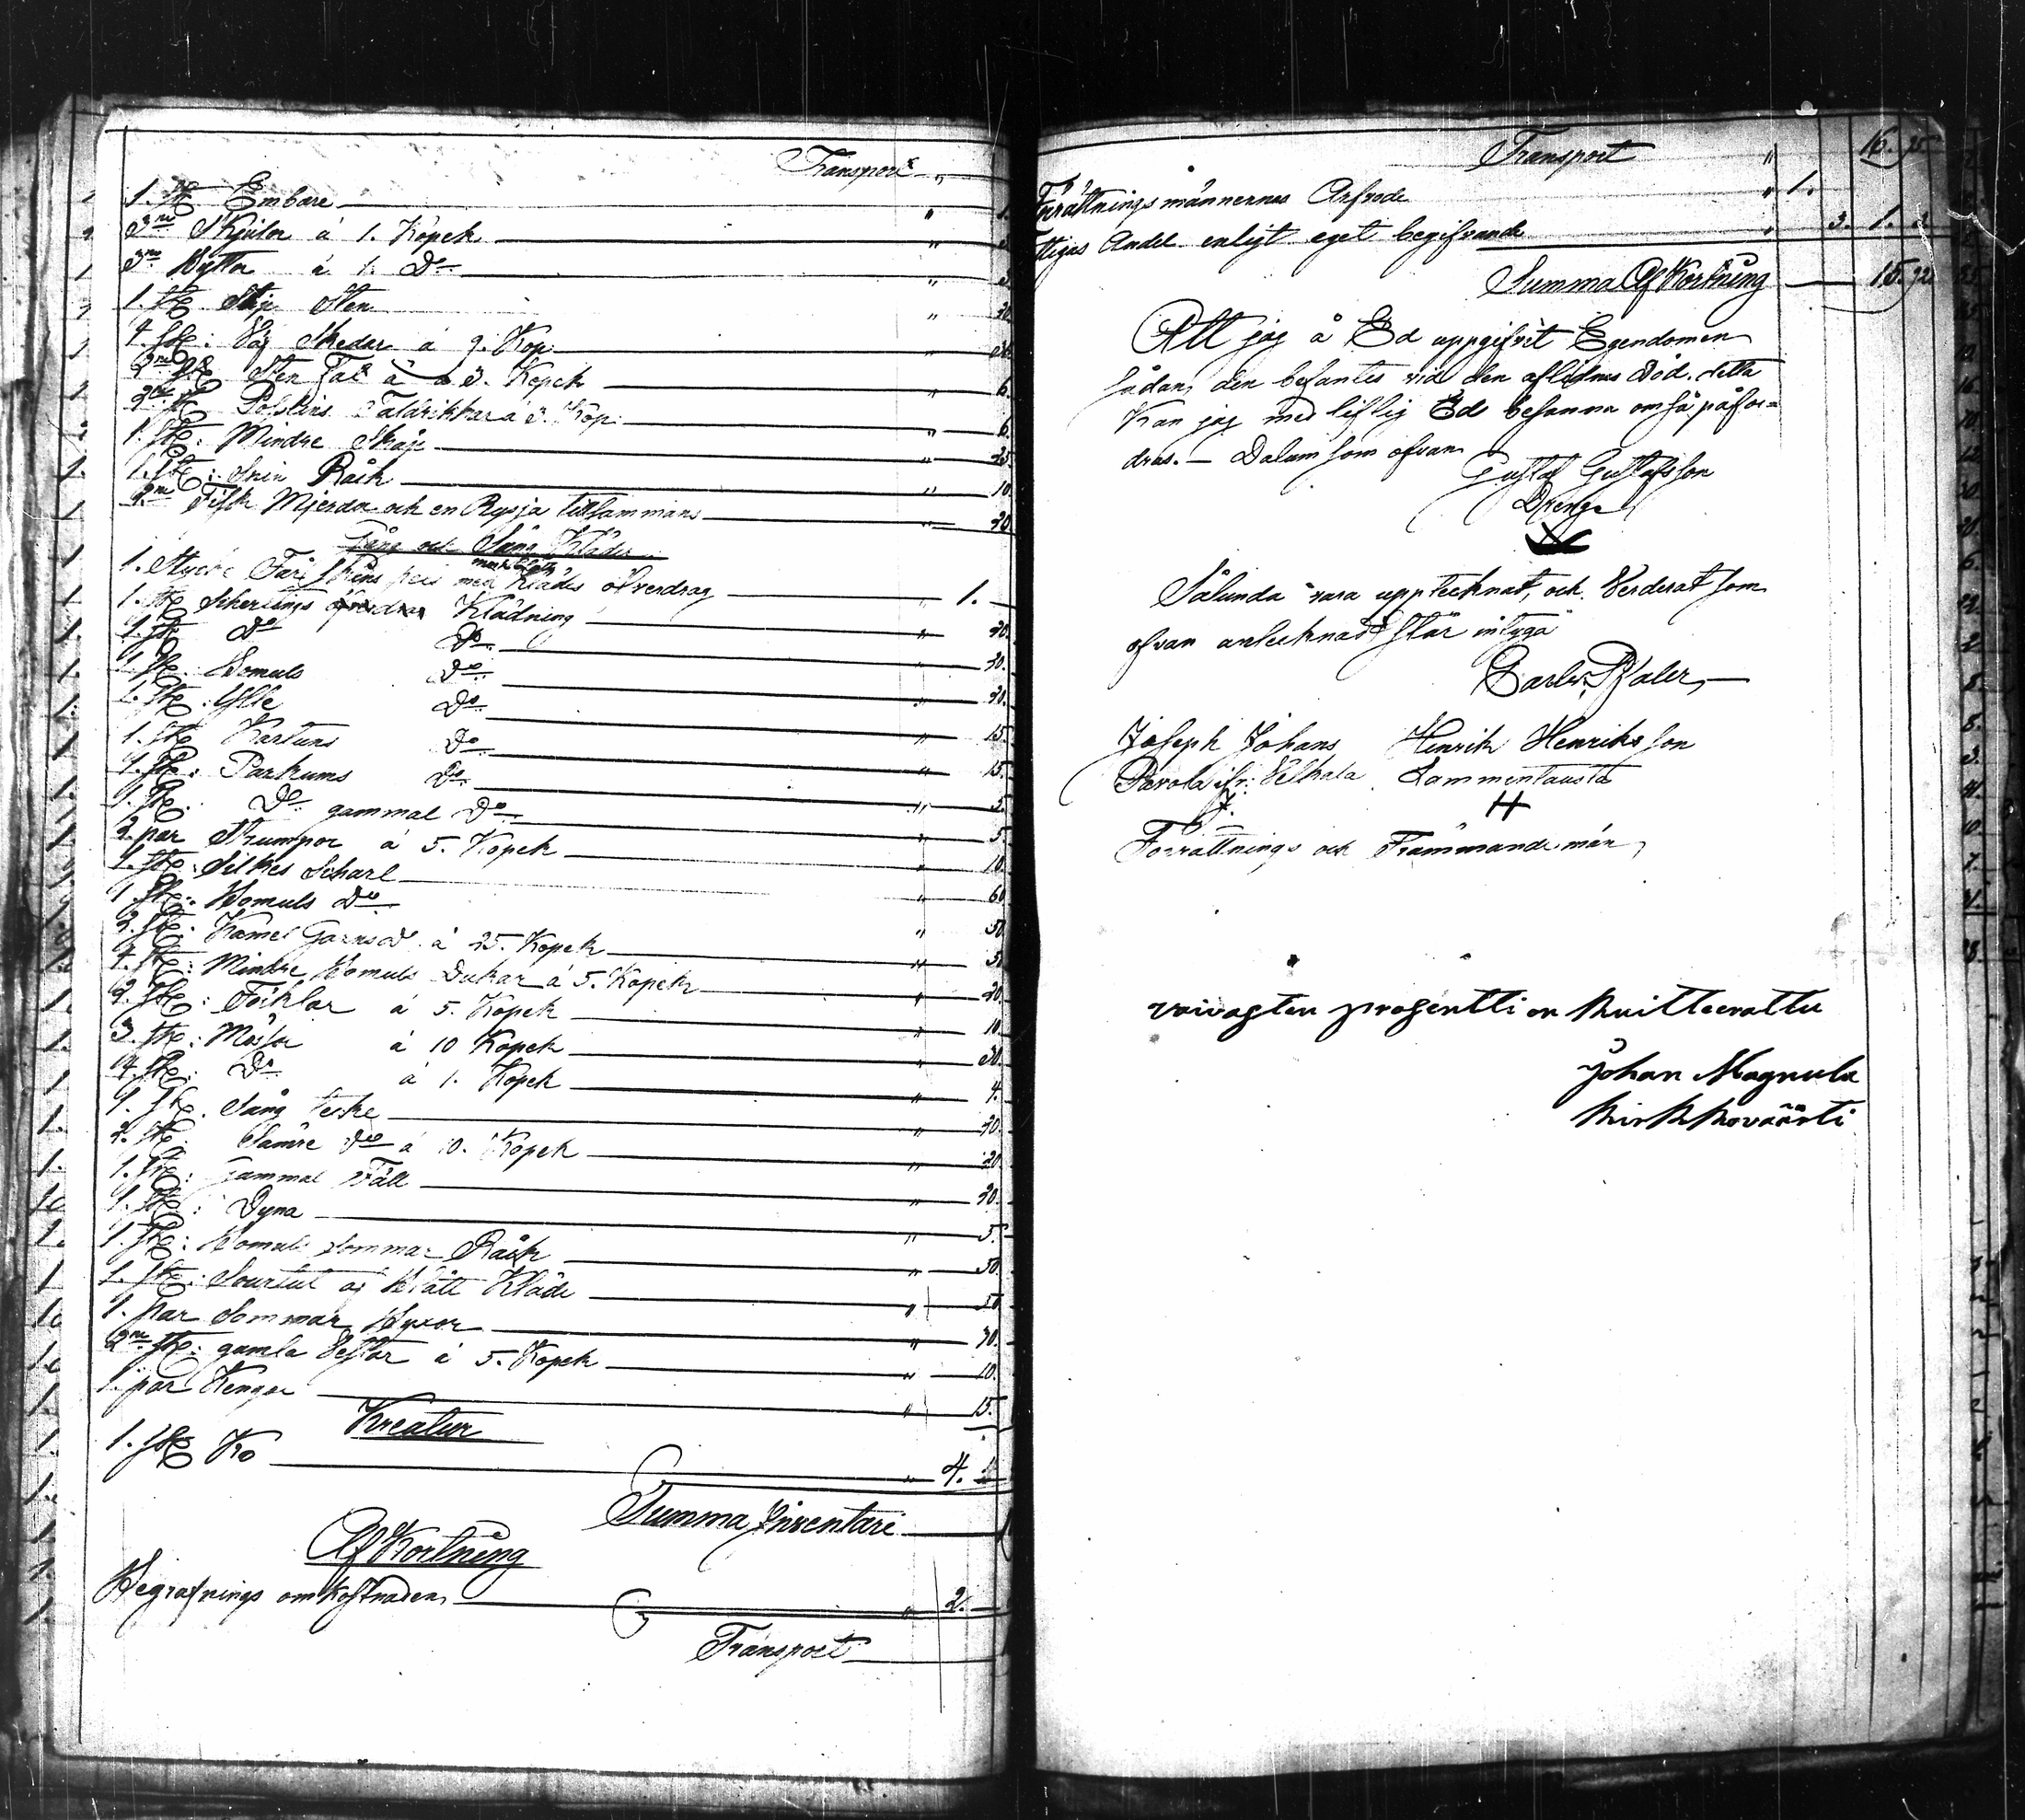 Transport "
1. st Embare " 1.
3ne Skjulor á 1. Kopek " 3.
3ne Byttor á 1. Do " 3.
1. st Slip Sten " 20.
4. st: Väf Skedar á 9. Kop. " 36.
2ne st Sten Fat á 3. Kopek " 6.
2ne st Polslins Taldrikkar á 3. Kop. " 6.
1. st: Mindre Skåp " 25.
1. st: Råck " 10.
2ne Fisk Mjerdar och en Rysja tillsammans " 20.
Gång och Säng Kläder
1. Stycke Får Skins pels med Klädes öfverdrag " 1. —
1. st Scherlings Klädning " 30.
1. st Do Do " 30.
1. st: Bomuls Do " 20.
1. st: Ylle Do " 15.
1. st Kartuns Do " 15.
1. st: Parkums Do " 5.
1. st: Do gammal Do " 5.
2. par Strumpor á 5. Kopek " 10.
1. st: Silkes Scharl " 60.
1. st: Bomuls Do " 50.
2. st: Kamel Garns Do á 25. Kopek " 50.
4. st: Mindre Bomuls Dukar á 5. Kopek " 20.
2. st: Förklär á 5. Kopek " 10.
3. st: Mössor á 10 Kopek " 30.
4. st: Do á 1. Kopek " 4.
1. st. Säng Teske " 20.
2. st: Sämre Do á 10. Kopek " 20.
1. st: gammal Fäll " 20.
1. st: Dyna " 5.
1. st: Bomuls Sommar Råck " 50.
1. st: Sourtut af blått Kläde " 50.
1. par Sommar Byxor " 30.
2ne st: gamla Vestar á 5. Kopek " 10.
1. par Kengor " 15.
Kreatur
1. st Ko " 4. —
Summa Inventari
Af Kortning
Begrafnings omkostnaden " 2. —
Transport
Transport " 16. 95
Förrättningsmännernes Arfvode " 1.
ttigas Andel enligt eget begifvande " 3. 1. 3
Summa Af Kortning 15. 92
Att jag å Ed uppgifvit Egendomen
sådan, den befantes vid den aflidnes Död, detta
Kan jag med liflig Ed besanna om så påfor=
dras. — Dalum som ofvan
Gustaf Gustafsson
Dreng
Sålunda vara upptecknat, och Verderat som
ofvan antecknadt står intyga
Carl
Joseph Johans Henrik Henriksson
Parola ifr: Velhala Lammentausta
J. H
Förrättnings och Främmande män,
vaivasten prosentti on kuitteerattu
Johan Magnula
kirkkoväärti